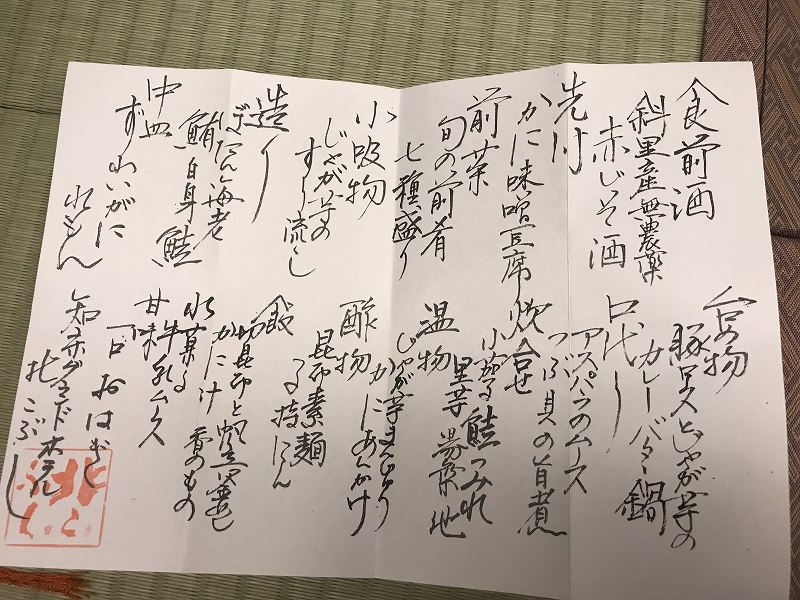 食前酒
斜里産無農薬
赤じそ酒
先付
かに味噌豆腐
前菜
旬の前肴
七種盛り
小吸物
じゃが芋の
すり流し
造り
ぼたん海老
鮪 白身 鮭
中皿
ずわいがに
れもん
台の物
豚ロースとじゃが芋の
カレーバター鍋
口代り
アスパラのムース
つぶ貝の旨煮
炊合せ
小茄子 鮭つみれ
里芋
温物
じゃが芋まんじゅう
かにあんかけ
酢物
昆布素麺
飯
切昆布と帆立釜めし
かに汁 香のもの
水菓子
牛乳ムース
甘味
一口おはぎ
知床グランドホテル
北こぶし
北こぶし